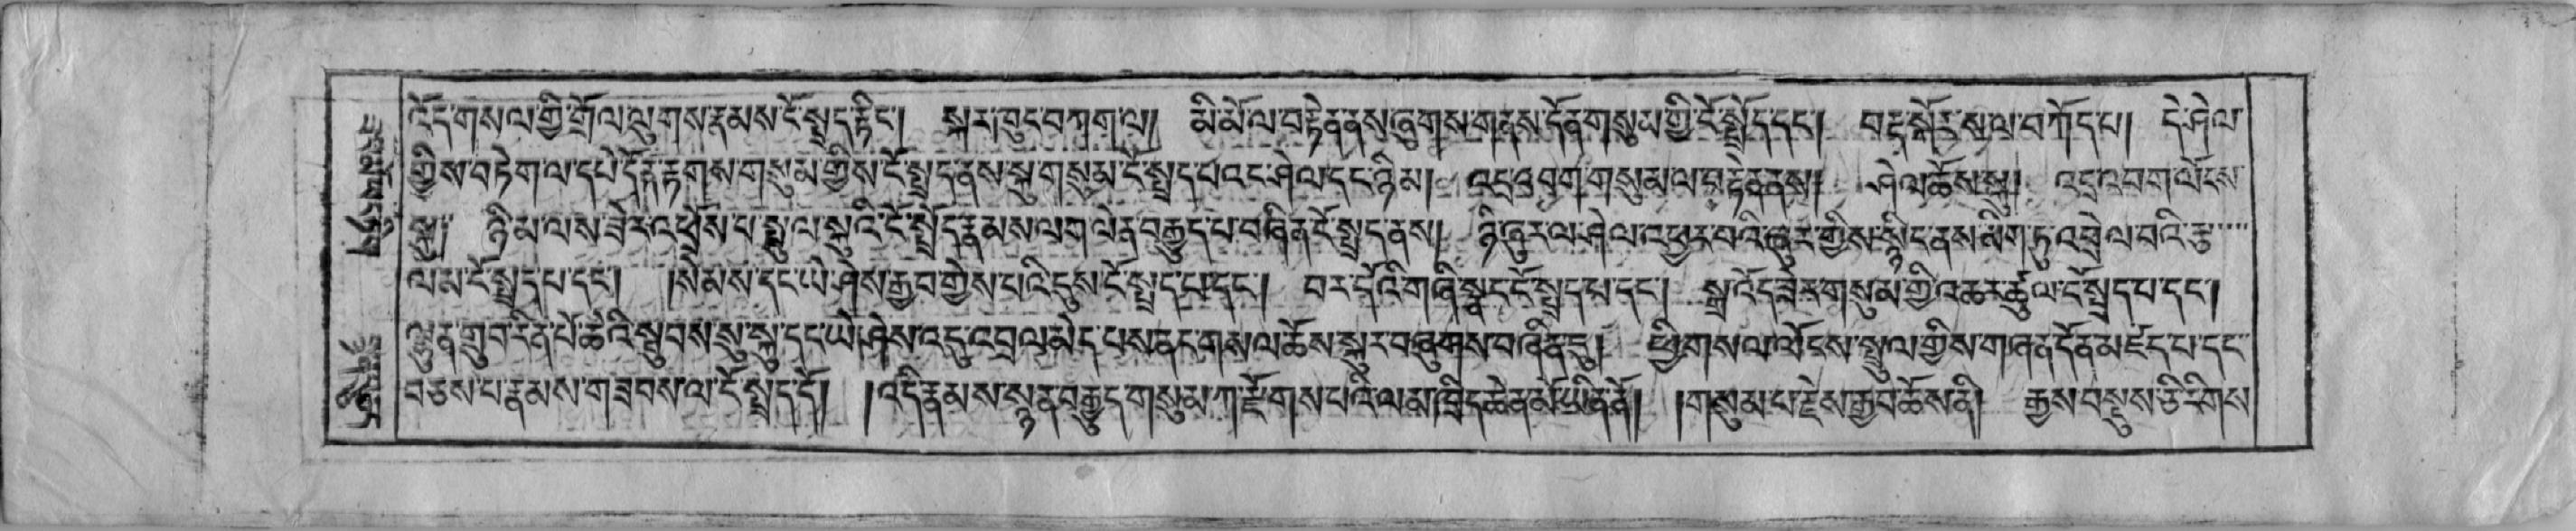 འོད་གསལ་གྱི་གྲོལ་ལུགས་རྣམས་ངོ་སྤྲད་རྟིང་། སྐར་ཁུང་བཀག་ལ། མི་མོལ་བརྟེན་ནས་ཞུགས་གནས་དོན་གསུམ་གྱི་ངོ་སྤྲོད་དང་། བརྡ་སྐོར་སལ་བཀོད་པ། དེ་ཤེལ་
གྱིས་བཏེག་ལ་དཔེ་དོན་རྟགས་གསུམ་གྱིས་ངོ་སྤྲད་ནས་སྐུ་གསུམ་ངོ་སྤྲད་པའང་ཤེལ་དང་ཉི་མ། འདྲ་འབག་གསུམ་ལ་བརྟེན་ནས། ཤེལ་ཆོས་སྐུ། འདྲ་འབག་ལོངས་
སྐུ། ཉི་མ་ལས་ཟེར་འཕྲོས་པ་སྤྲུལ་སྐུའི་ངོ་སྤྲོད་རྣམས་ལག་ལེན་བརྒྱུད་པ་བཞིན་ངོ་སྤྲད་ནས། ཉི་ཞུར་ལ་ཤེལ་འཕྱར་བའི་ཟུར་གྱིས་སྙིང་ནས་མིག་ཏུ་འབྲེལ་བའི་རྩ
ལམ་ངོ་སྤྲད་པ་དང་། །སེམས་དང་ཡེ་ཤེས་རྒྱབ་གྱེས་པའི་དུས་ངོ་སྤྲད་པ་དང་། བར་དོའི་གཞི་སྣང་ངོ་སྤྲད་པ་དང་། སྒྲ་འོད་ཟེར་གསུམ་གྱི་འཆར་ཚུལ་ངོ་སྤྲད་པ་དང་།
ལྷུན་གྲུབ་རིན་པོ་ཆེའི་སྦུབས་སུ་སྐུ་དང་ཡེ་ཤེས་འདུ་འབྲལ་མེད་པས་ནང་གསལ་ཆོས་སྐུར་བཞུགས་བཞིན་དུ། ཕྱི་གསལ་ལོངས་སྤྲུལ་གྱིས་གཞན་དོན་མཛད་པ་དང་
བཅས་པ་རྣམས་གཟབས་ལ་ངོ་སྤྲད་དོ། །འདི་རྣམས་སྙན་བརྒྱུད་གསུམ་ཀ་རྫོགས་པའི་ལམ་ཁྲིད་ཆེན་མོ་ཡིན་ནོ། །གསུམ་པ་རྗེས་རྒྱབ་ཆོས་ནི། རྒྱས་བསྡུས་ཅི་རིགས་